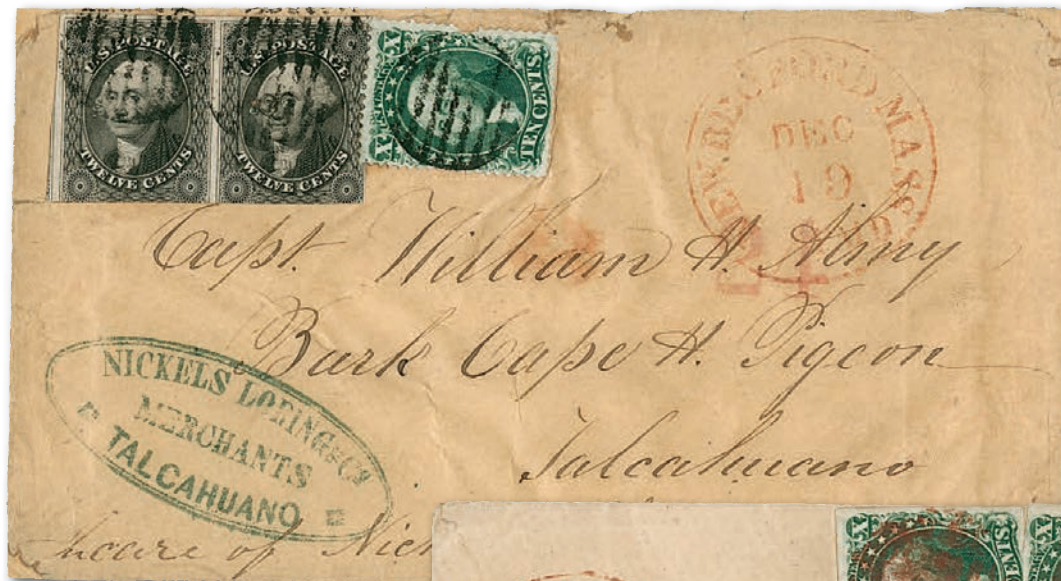 U.S. POSTAGE U.S. POSTAGE
TWELVE CENTS TWELVE CENTS
X X
TEN CENTS
NEW BEDFORD MAS.
DEC
19
24
Capt. William H. Almy
Bark Cape H. Pigeon
Talcahuano
NICKELS LORING & CO
MERCHANTS
TALCAHUANO
Incare of
X